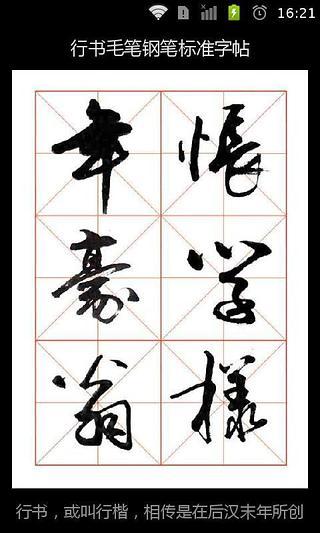 16:21
行书毛笔钢笔标准字帖
年 悵
豪 学
翁 樣
行书，或叫行楷，相传是在后汉末年所创